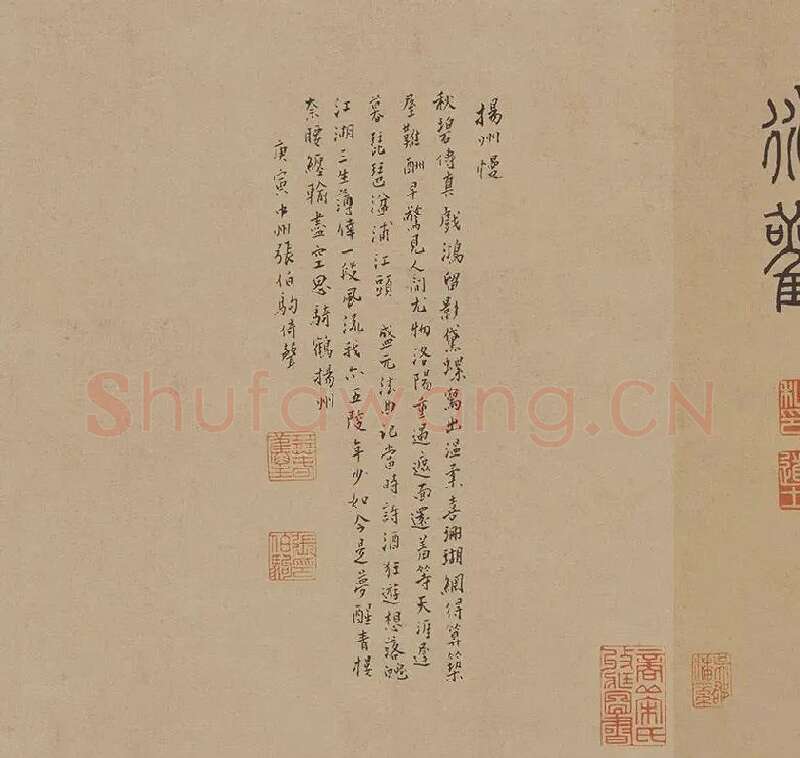 揚州慢
秋碧傳真戲鴻留影黛螺寫出溫柔喜珊瑚網得算築
屋難酬早驚見人間尤物洛陽重遇遮面還羞等天涯遲
暮琵琶湓浦江頭 盛元法曲記當時詩酒狂遊想落魄
江湖三生薄倖一段風流我亦五陵年少如今是夢醒青樓
奈腰纏輸盡空思騎鶴揚州
庚寅中州張伯駒倚聲
張伯駒
Shufawang.CN